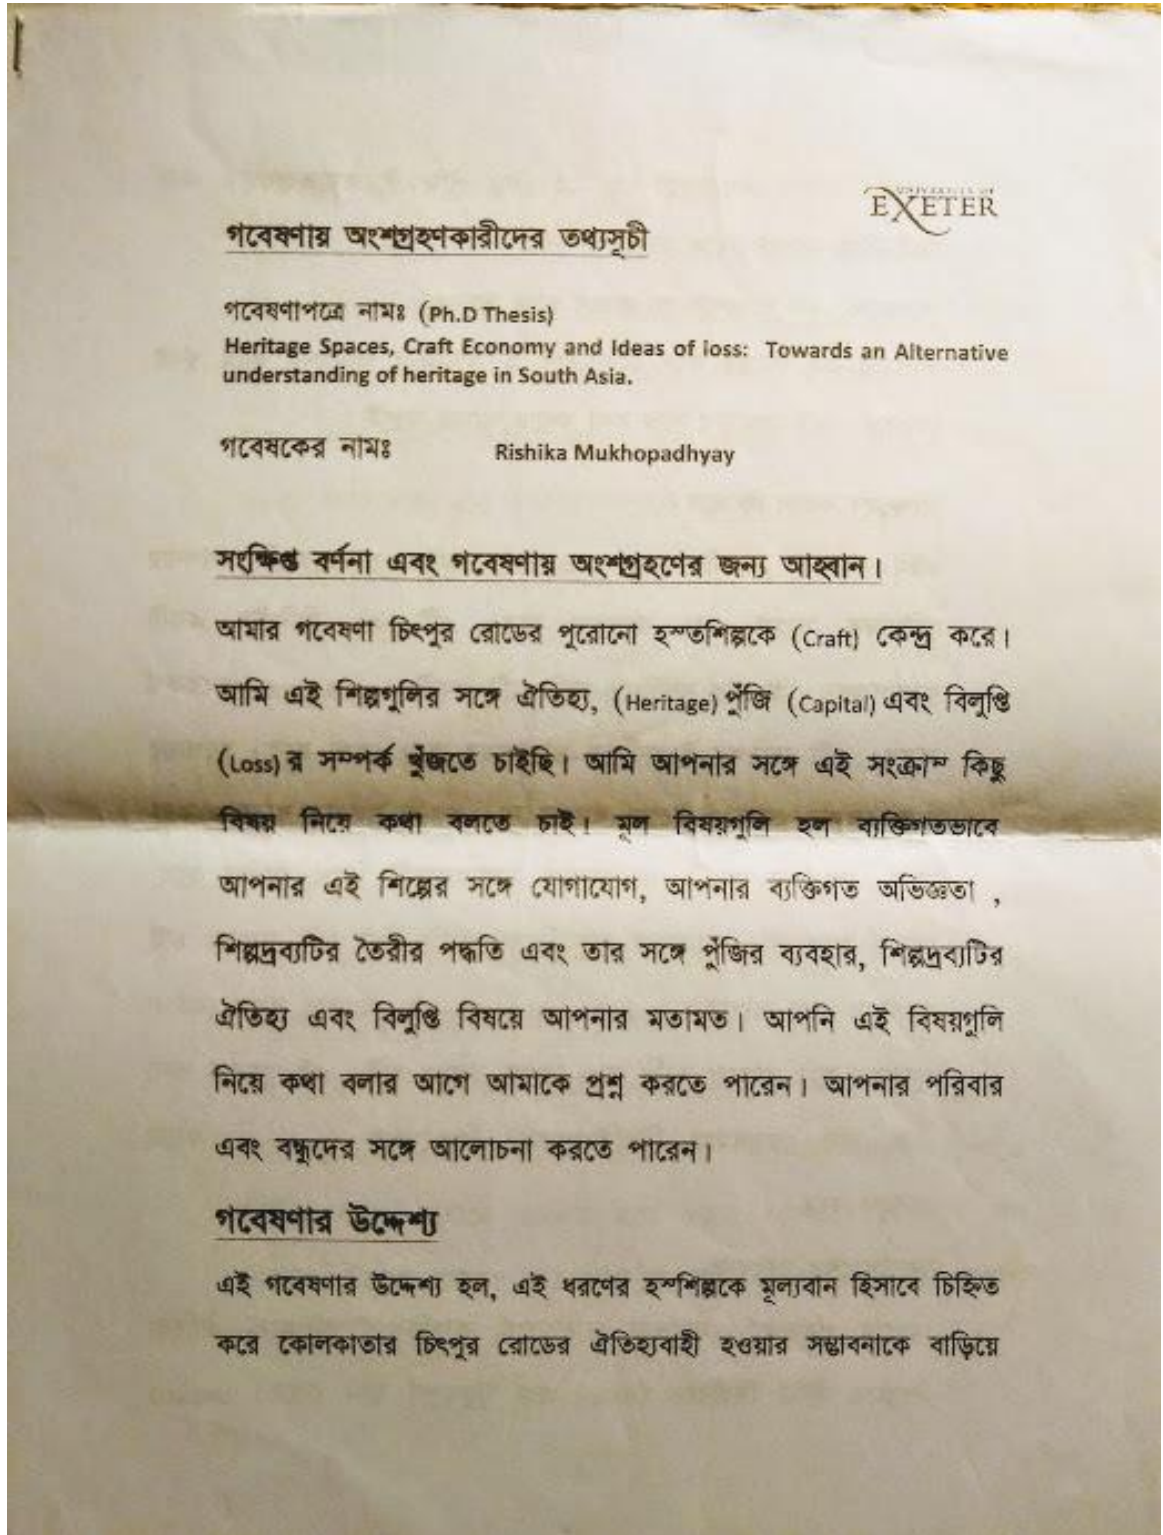 UNIVERSITY OF
EXETER
গবেষণায় অংশগ্রহণকারীদের তথ্যসূচী
গবেষণাপত্রে নামঃ (Ph.D Thesis)
Heritage Spaces, Craft Economy and Ideas of loss: Towards an Alternative
understanding of heritage in South Asia.
গবেষকের নামঃ Rishika Mukhopadhyay
সংক্ষিপ্ত বর্ণনা এবং গবেষণায় অংশগ্রহণের জন্য আহ্বান।
আমার গবেষণা চিৎপুর রোডের পুরোনো হস্তশিল্পকে (Craft) কেন্দ্র করে।
আমি এই শিল্পগুলির সঙ্গে ঐতিহ্য, (Heritage) পুঁজি (Capital) এবং বিলুপ্তি
(Loss) র সম্পর্ক খুঁজতে চাইছি। আমি আপনার সঙ্গে এই সংক্রাস্ কিছু
বিষয় নিয়ে কথা বলতে চাই। মূল বিষয়গুলি হল ব্যক্তিগতভাবে
আপনার এই শিল্পের সঙ্গে যোগাযোগ, আপনার ব্যক্তিগত অভিজ্ঞতা ,
শিল্পদ্রব্যটির তৈরীর পদ্ধতি এবং তার সঙ্গে পুঁজির ব্যবহার, শিল্পদ্রব্যটির
ঐতিহ্য এবং বিলুপ্তি বিষয়ে আপনার মতামত। আপনি এই বিষয়গুলি
নিয়ে কথা বলার আগে আমাকে প্রশ্ন করতে পারেন। আপনার পরিবার
এবং বন্ধুদের সঙ্গে আলোচনা করতে পারেন।
গবেষণার উদ্দেশ্য
এই গবেষণার উদ্দেশ্য হল, এই ধরণের হস্শিল্পকে মূল্যবান হিসাবে চিহ্নিত
করে কোলকাতার চিৎপুর রোডের ঐতিহ্যবাহী হওয়ার সম্ভাবনাকে বাড়িয়ে